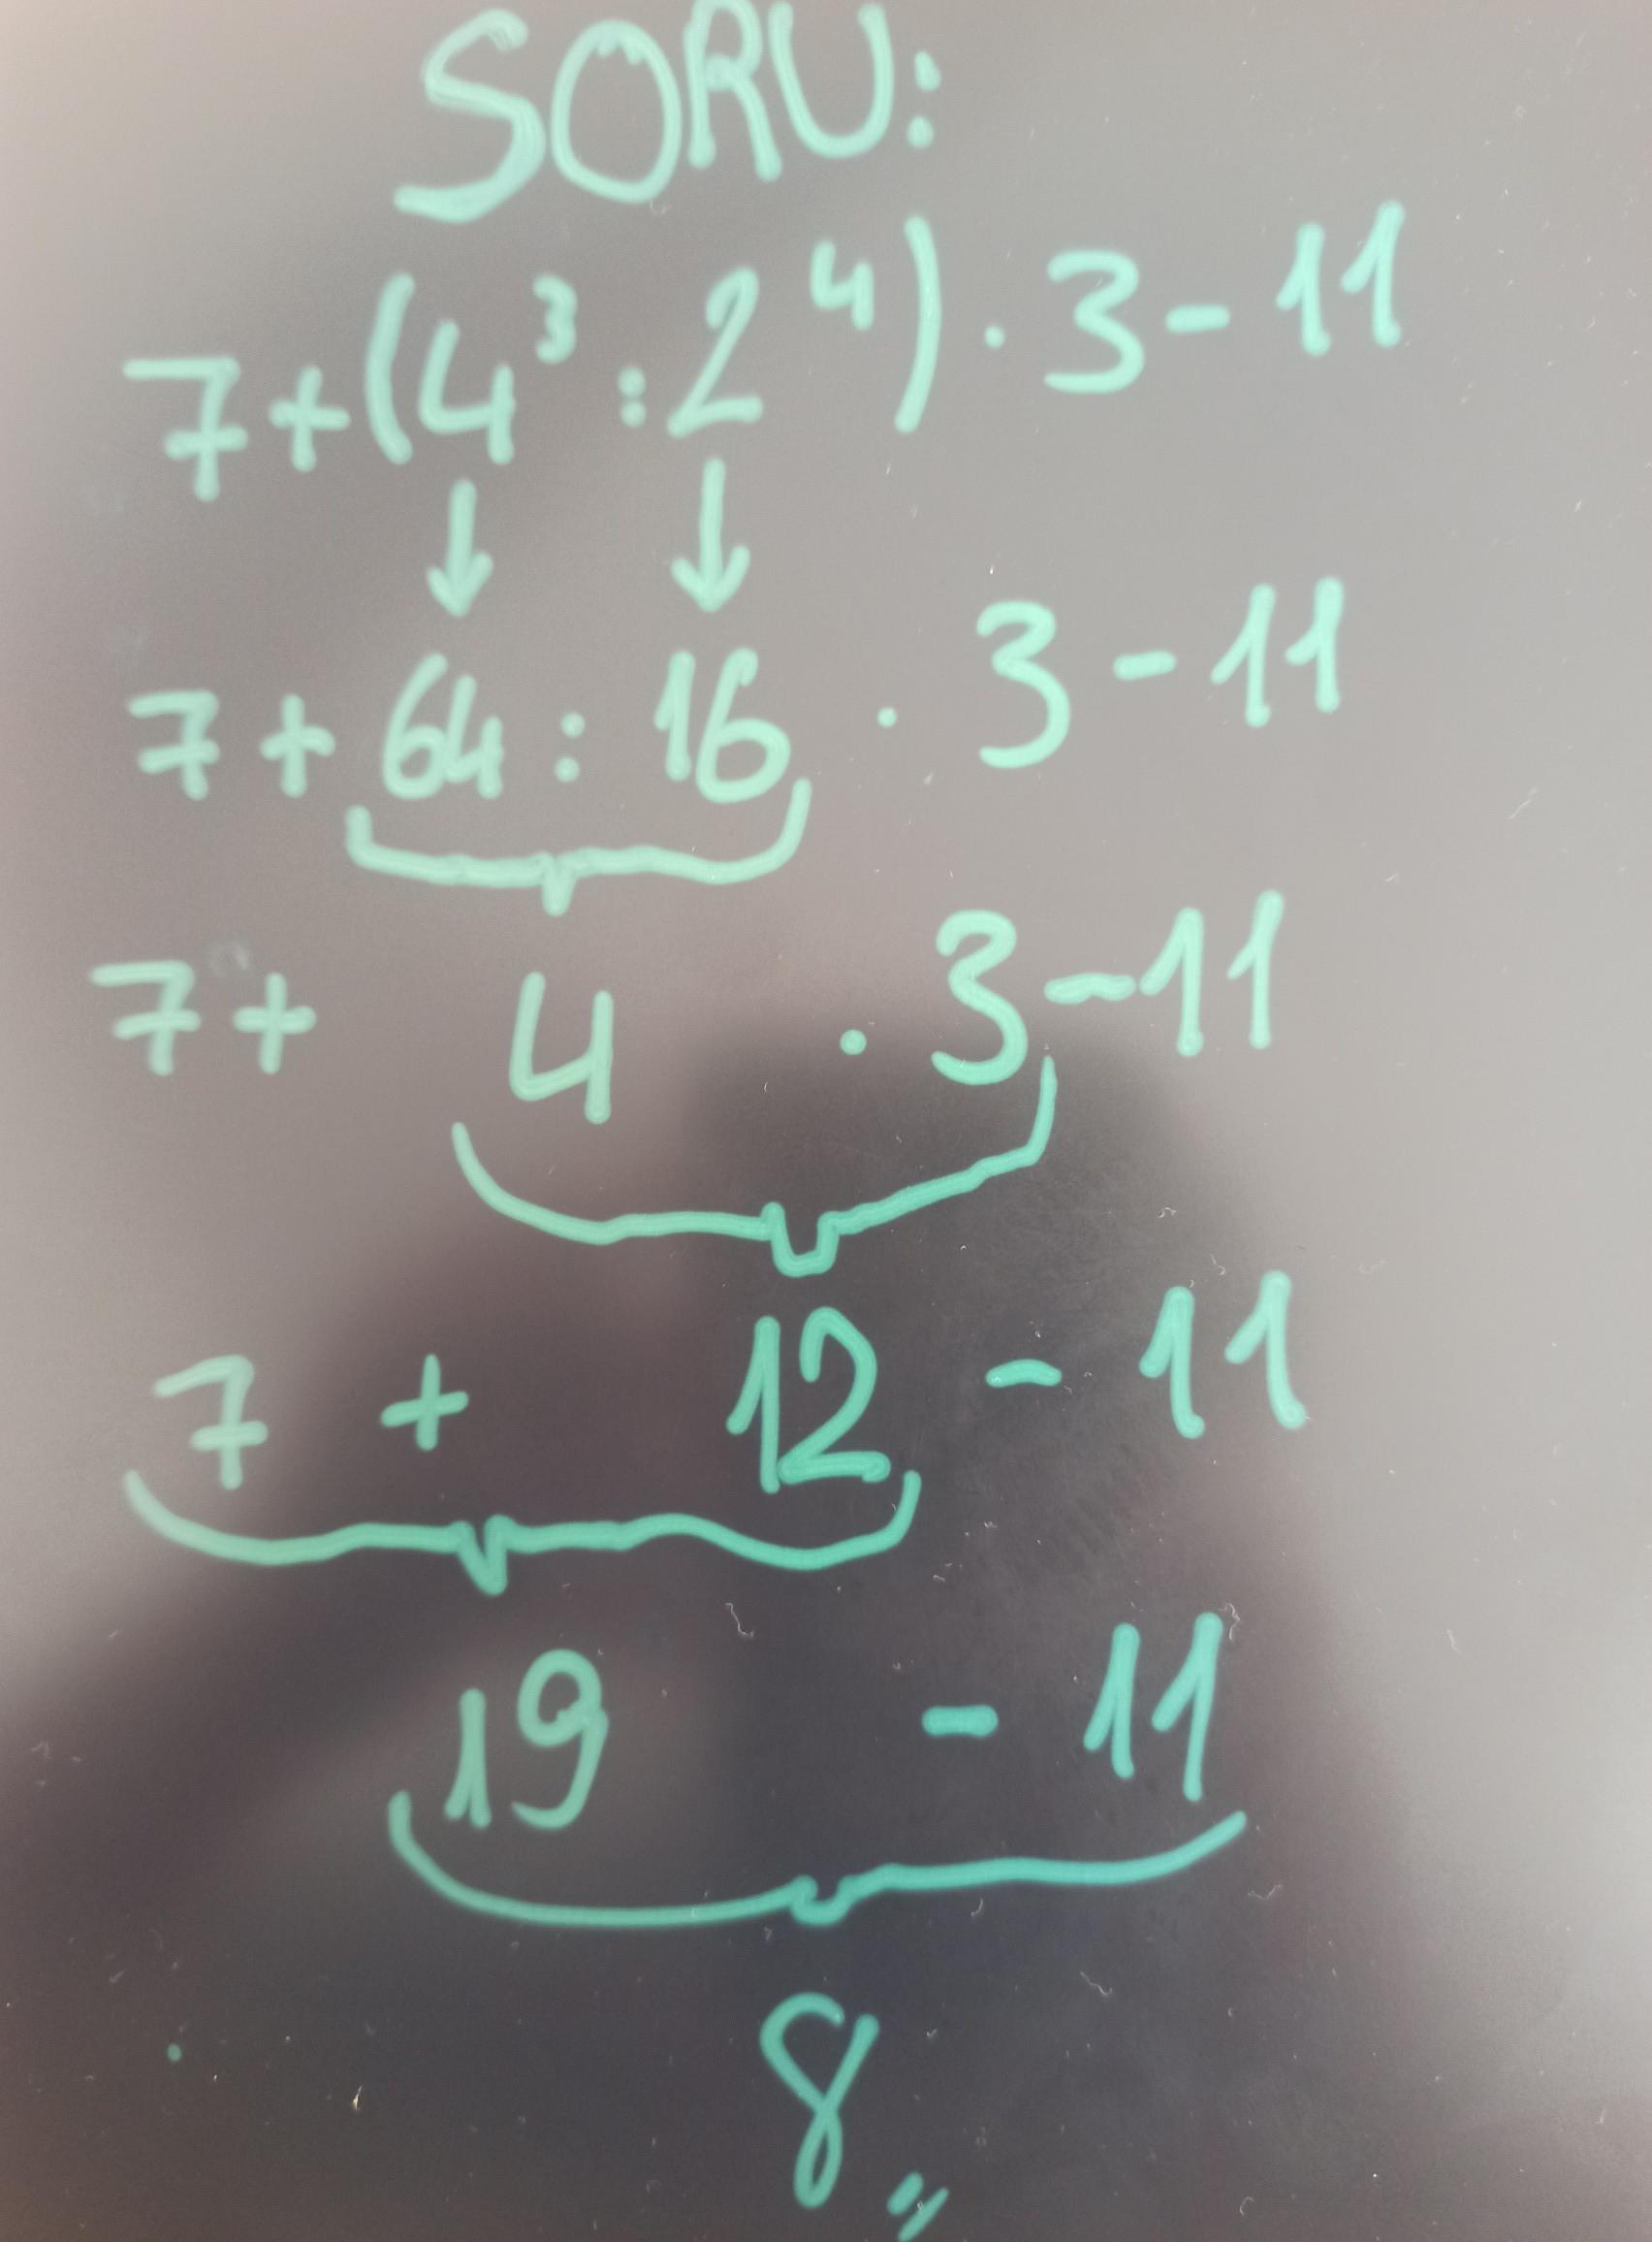 SORU:
7+(4³:2⁴).3-11
7+64:16.3-11
7+4.3-11
7+12-11
19-11
8,,